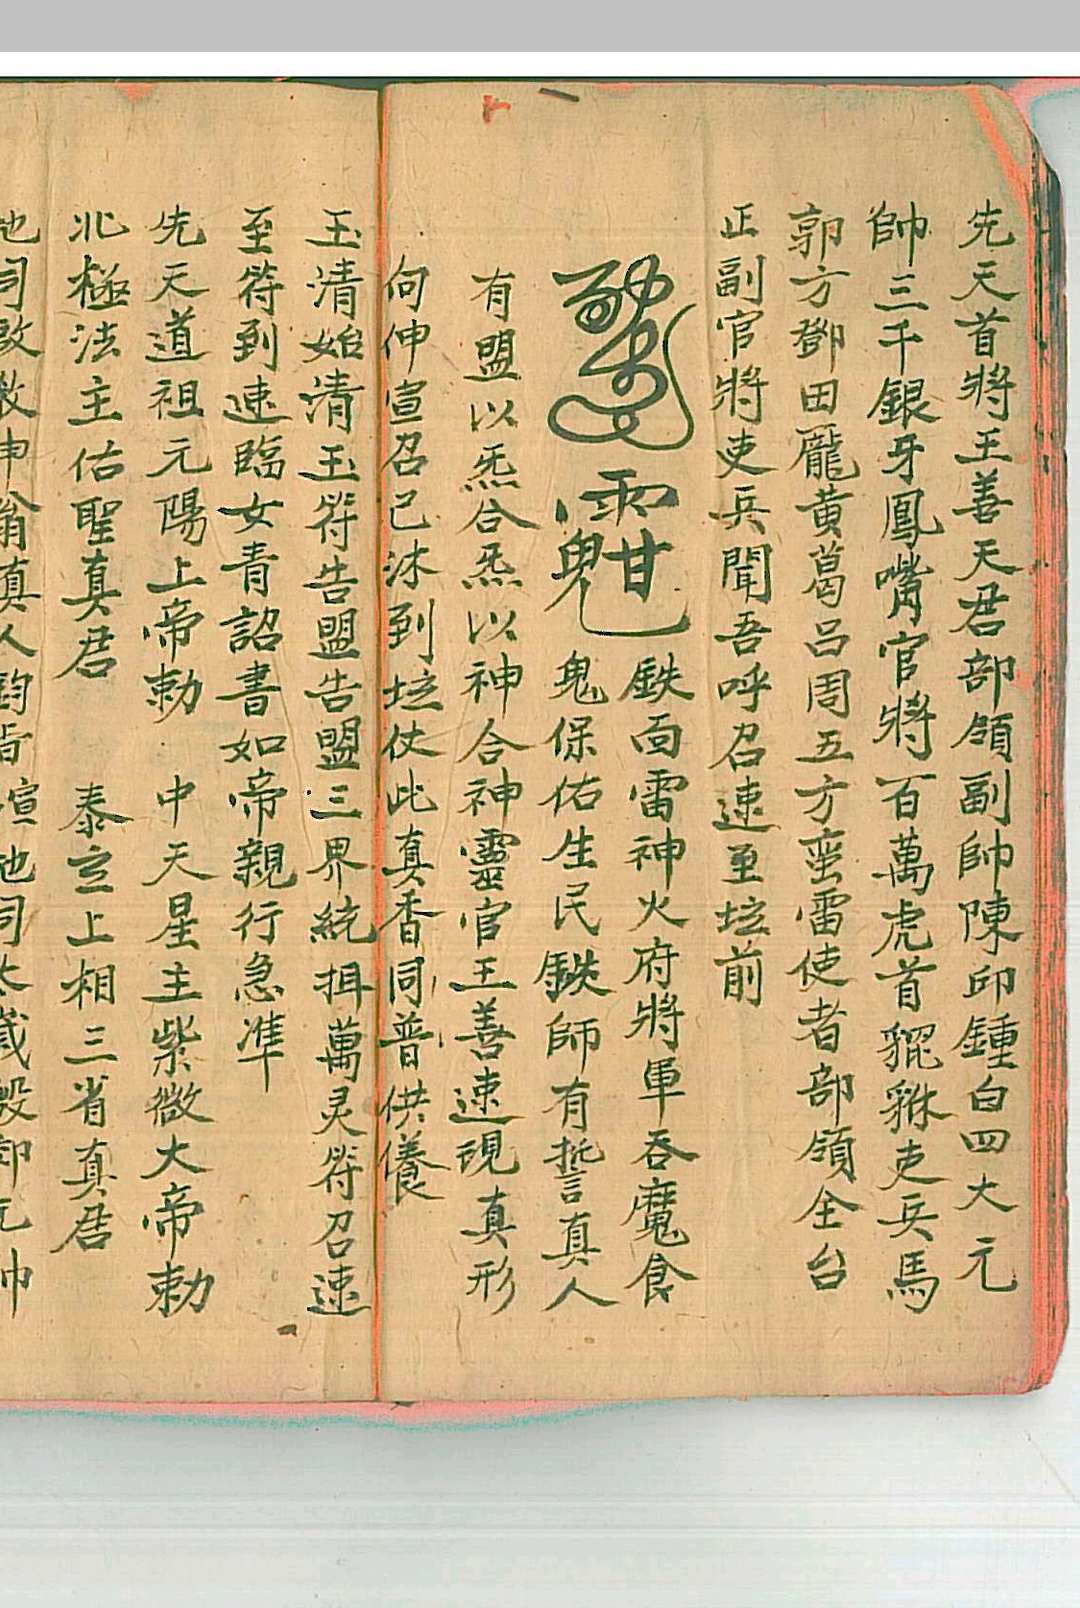 先天首將王善天君部領副帥陳邱鍾白四大元
帥三千銀牙鳳嘴官將百萬虎首貔貅吏兵馬
郭方鄧田龐黃葛呂周五方蛮雷使者部領全台
正副官將吏兵聞吾呼召速至坛前
鉄面雷神火府將軍吞魔食
鬼保佑生民鉄師有誓真人
有盟以炁合炁以神合神靈官王善速現真形
向伸宣召已沐到坛仗此真香同普供養
玉清始清玉符告盟告盟三界統揖萬灵符召速
至符到速臨女青詔書如帝親行急準
先天道祖元陽上帝勅 中天星主紫微大帝勅
北極法主佑聖真君 泰玄上相三省真君